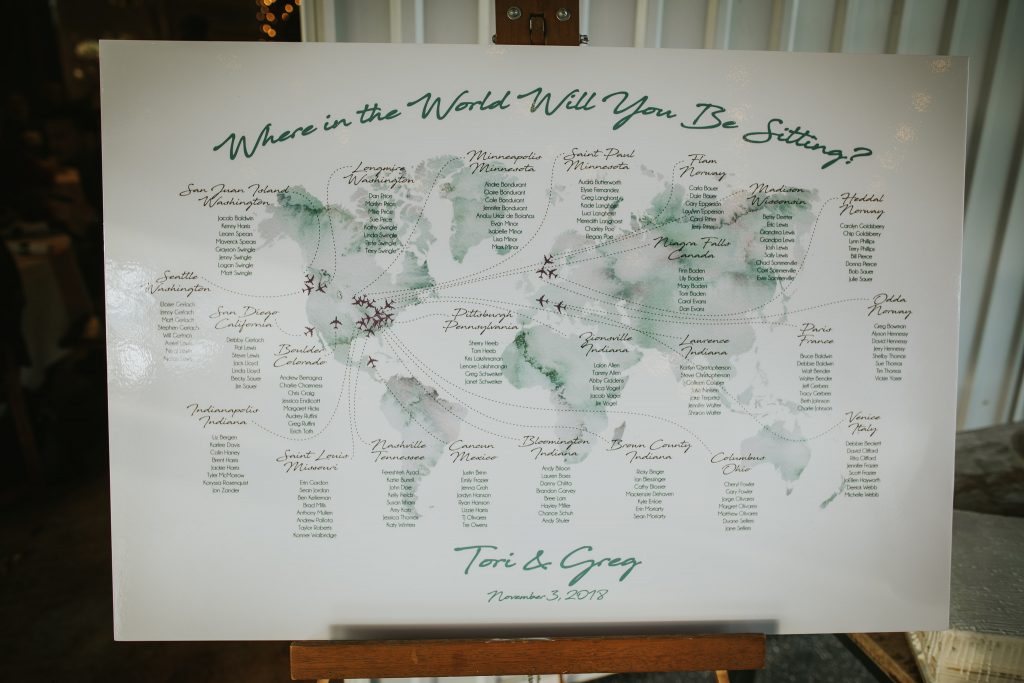 Where in the World Will You Be Sitting?
San Juan Island
Washington
Jacob Baldwin
Kenny Harris
Leann Spears
Maverick Spears
Grayson Swingle
Jenny Swingle
Logan Swingle
Matt Swingle
Longmire
Washington
Dan Price
Marilyn Price
Mike Price
Sue Price
Kathy Swingle
Linda Swingle
Pete Swingle
Terry Swingle
Minneapolis
Minnesota
Andre Bondurant
Claire Bondurant
Cole Bondurant
Jennifer Bondurant
Evan Minor
Isabelle Minor
Lisa Minor
Mark Minor
Saint Paul
Minnesota
Audra Butterworth
Elyse Fernandez
Greg Langhorst
Kade Langhorst
Luca Langhorst
Meredith Langhorst
Charley Poe
Regan Poe
Flam
Norway
Carla Bauer
Dale Bauer
Gary Epperson
Laurlyn Epperson
Carol Ritter
Jerry Ritter
Madison
Wisconsin
Betsy Deeter
Eric Lewis
Grandma Lewis
Grandpa Lewis
Josh Lewis
Sally Lewis
Chad Sonnerville
Cori Sonnerville
Evie Sonnerville
Heddal
Norway
Carolyn Goldsberry
Chip Goldsberry
Lynn Phillips
Terry Phillips
Bill Pierce
Donna Pierce
Bob Sauer
Julie Sauer
Niagra Falls
Canada
Finn Baden
Lily Baden
Mary Baden
Tom Baden
Carol Evans
Dan Evans
Seattle
Washington
Eloise Gerlach
Jenny Gerlach
Matt Gerlach
Stephen Gerlach
Will Gerlach
Annie Lewis
Nick Lewis
San Diego
California
Debby Gerlach
Pat Lewis
Steve Lewis
Jack Lloyd
Linda Lloyd
Becky Sauer
Jim Sauer
Boulder
Colorado
Andrew Berragna
Charlie Charnness
Chris Craig
Jessica Endicott
Margaret Hicks
Audrey Ruffini
Greg Ruffini
Erich Toth
Pittsburgh
Pennsylvania
Sherry Heeb
Tom Heeb
Kris Lakshmanan
Lenore Lakshmanan
Greg Schweiker
Janet Schweiker
Zionsville
Indiana
Lason Allen
Tammy Allen
Abby Giddens
Erica Vogel
Jacob Vogel
Jim Vogel
Laurence
Indiana
Kaitlyn Christopherson
Steve Christopherson
Colleen Colone
Jake Terpstra
Jennifer Walter
Sharon Walter
Paris
France
Bruce Baldwin
Debbie Baldwin
Walt Bender
Walter Bender
Jeff Gerbers
Tracy Gerbers
Beth Johnson
Charlie Johnson
Odda
Norway
Greg Bowman
Alyson Hennessy
David Hennessy
Jerry Hennessy
Shelby Thomas
Sue Thomas
Tim Thomas
Vickie Yoser
Indianapolis
Indiana
Liz Bergen
Karlee Davis
Colin Haney
Brent Harris
Jackie Harris
Tyler McMorrow
Karyssa Rosenquist
Jon Zander
Saint Louis
Missouri
Erin Gordon
Sean Jordan
Ben Kellerman
Brad Mills
Anthony Mullen
Andrew Pallotta
Taylor Roberts
Konner Walbridge
Nashville
Tennessee
Fereshteh Azad
Katie Burrell
John Doe
Kelly Fields
Susan Irfham
Amy Kaiz
Jessica Thomas
Katy Winters
Cancun
Mexico
Justin Birkin
Emily Frazier
Jenna Groh
Jordyn Hanson
Ryan Hanson
Lizzie Harris
TJ Olivares
Tre Owens
Bloomington
Indiana
Andy Bloom
Lauren Boes
Danny Chilita
Brandon Garvey
Bree Lam
Hayley Miller
Chance Schuh
Andy Shuler
Brown County
Indiana
Ricky Binger
Ian Blessinger
Cathy Blosser
Mackenzie DeHaven
Kyle Enlow
Erin Moriarty
Sean Moriarty
Columbus
Ohio
Cheryl Fowler
Gary Fowler
Jorge Olivares
Margret Olivares
Matthew Olivares
Duane Sellers
Jane Sellers
Venice
Italy
Debbie Beckett
David Clifford
Rita Clifford
Jennifer Frazier
Scott Frazier
JoEllen Hayworth
Derrick Webb
Michelle Webb
Tori & Greg
November 3, 2018